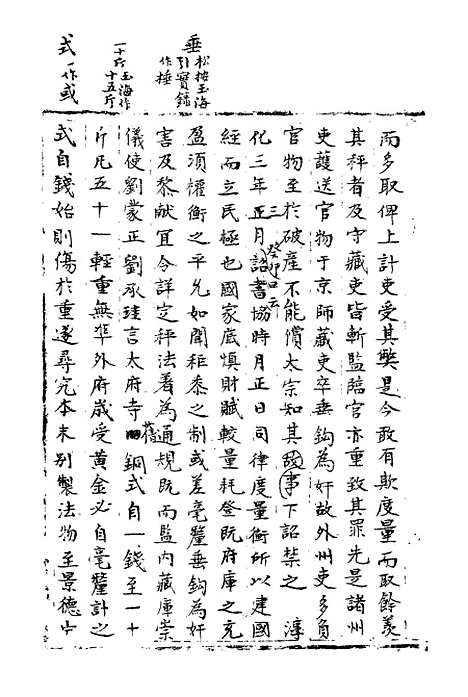 而多取俾上計吏受其弊是今敢有欺度量而取餘羡
其秤者及守藏吏皆斬監臨官亦重致其罪先是諸州
吏護送官物于京師藏吏卒垂鈎為奸故外州吏多負
官物至於破產不能償太宗知其故事下詔禁之 淳
化三年正月詔書協時月正日同律度量衡所以建國
三
癸卯口云
經而立民極也國家底慎財賦較量耗登既府庫之充
盈須權衡之平允如聞秬黍之制或差毫釐垂鈎為奸
害及黎獻宜令詳定秤法著為通規既而監內藏庫崇
儀使劉蒙正劉承珪言太府寺舊銅式自一錢至一十
斤凡五十一輕重無準外府歲受黄金必自毫釐計之
式自錢始則傷於重遂尋究本末别製法物至景德中
垂 松按玉海
引實錄
作捶
一十斤玉海作
十五斤
式一作或